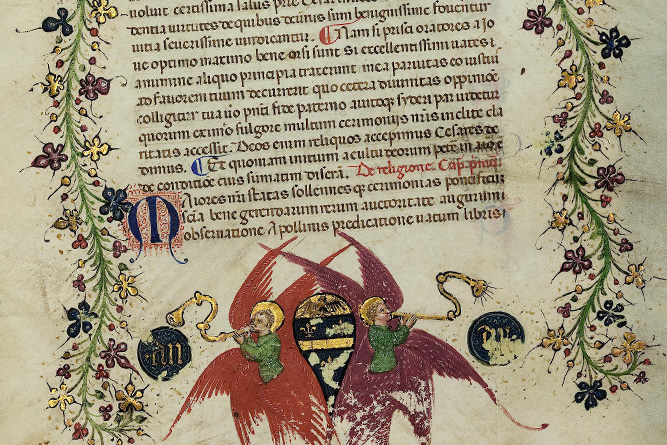 uoluit certissima salus prie Cesar
dentia uirtutes de quibus dicturus sum benignissime fouentur
uitia seuerissime uindicantur. Nam si prisci oratores a Io
ue optimo maximo bene orsi sunt si excellentissimi uates a
numine aliquo principia traxerunt mea paruitas eo iustiu
ad fauorem tuum decurrerit quo cetera diuinitas oppinioe
colligitur tua pnti fide paterno auitoq; syderi par uidetur
quorum eximio fulgore multum cerimonijs nris inclite cla
ritatis accessit. Deos enim reliquos accepimus Cesares de
dimus. Et quoniam initium a cultu deorum petere in
de conditioe eius sumatim disera. De religione. Cap. primu
Maiores nri statas sollennesq; cerimonias pontificum
scia bene gerendarum rerum auctoritate augurum
obseruatione Apollinis predicatione uatum libris